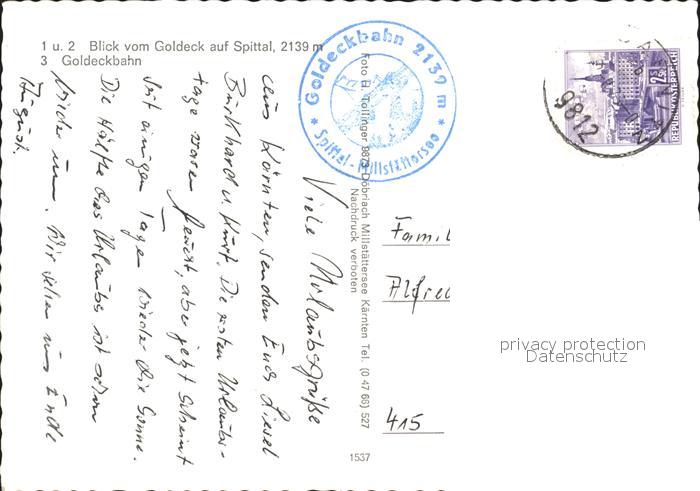 1 u. 2 Blick vom Goldeck auf Spittal, 2139 m
3 Goldeckbahn
Goldeckbahn 2139 m
* Spittal-Millstättersee *
Foto H. Tollinger 9873 Döbriach Millstättersee Kärnten Tel. (0 47 66) 527
Nachdruck verboten
1537
Viele Urlaubsgrüße
aus Kärnten, senden Euch Liesel
Burkhard u. Kurt. Die ersten Urlaubs-
tage waren feucht, aber jetzt scheint
seit einigen Tagen wieder die Sonne.
Die Hälfte des Urlaubs ist schon
wieder um. Wir sehen uns Ende
August.
9812
REPUBLIK ÖSTERREICH
Famil
Alfred
415
privacy protection
Datenschutz